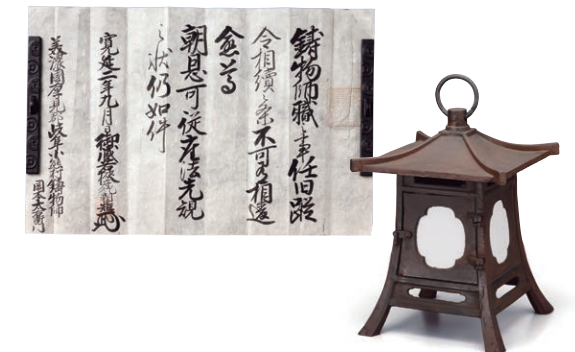 鋳物師職之事任旧蹤
令相續之条不可有相違
愈
朝恩可従座法先規
之状仍如件
寛延二年九月日
美濃国厚見郡岐阜小熊村鋳物師
岡本太右衛門